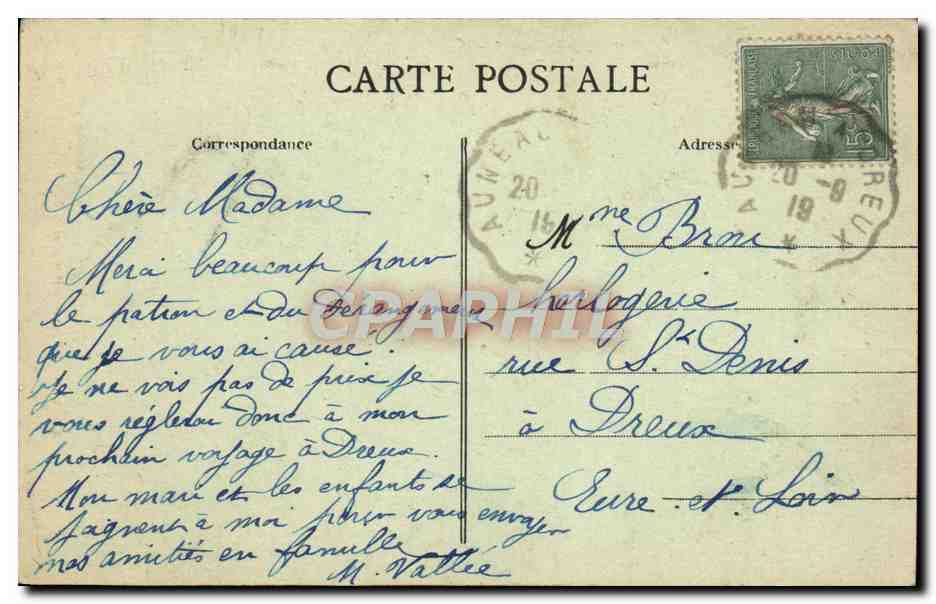 CARTE POSTALE
Correspondance
Adresse
Chère Madame
Merci beaucoup pour
le patron et du derangement
que je vous ai causé.
Je ne vois pas de prix je
vous réglerai donc à mon
prochain voyage à Dreux.
Mon mari et les enfants se
joignent à moi pour vous envoyer
mes amitiés en famille
M. Vallée
Mme Brou
horlogerie
rue St Denis
à Dreux
Eure et Loir
AUNEAU
20
AU DREUX
20 -9
19
REPUBLIQUE FRANÇAISE
POSTES
15c
CPARPHIL